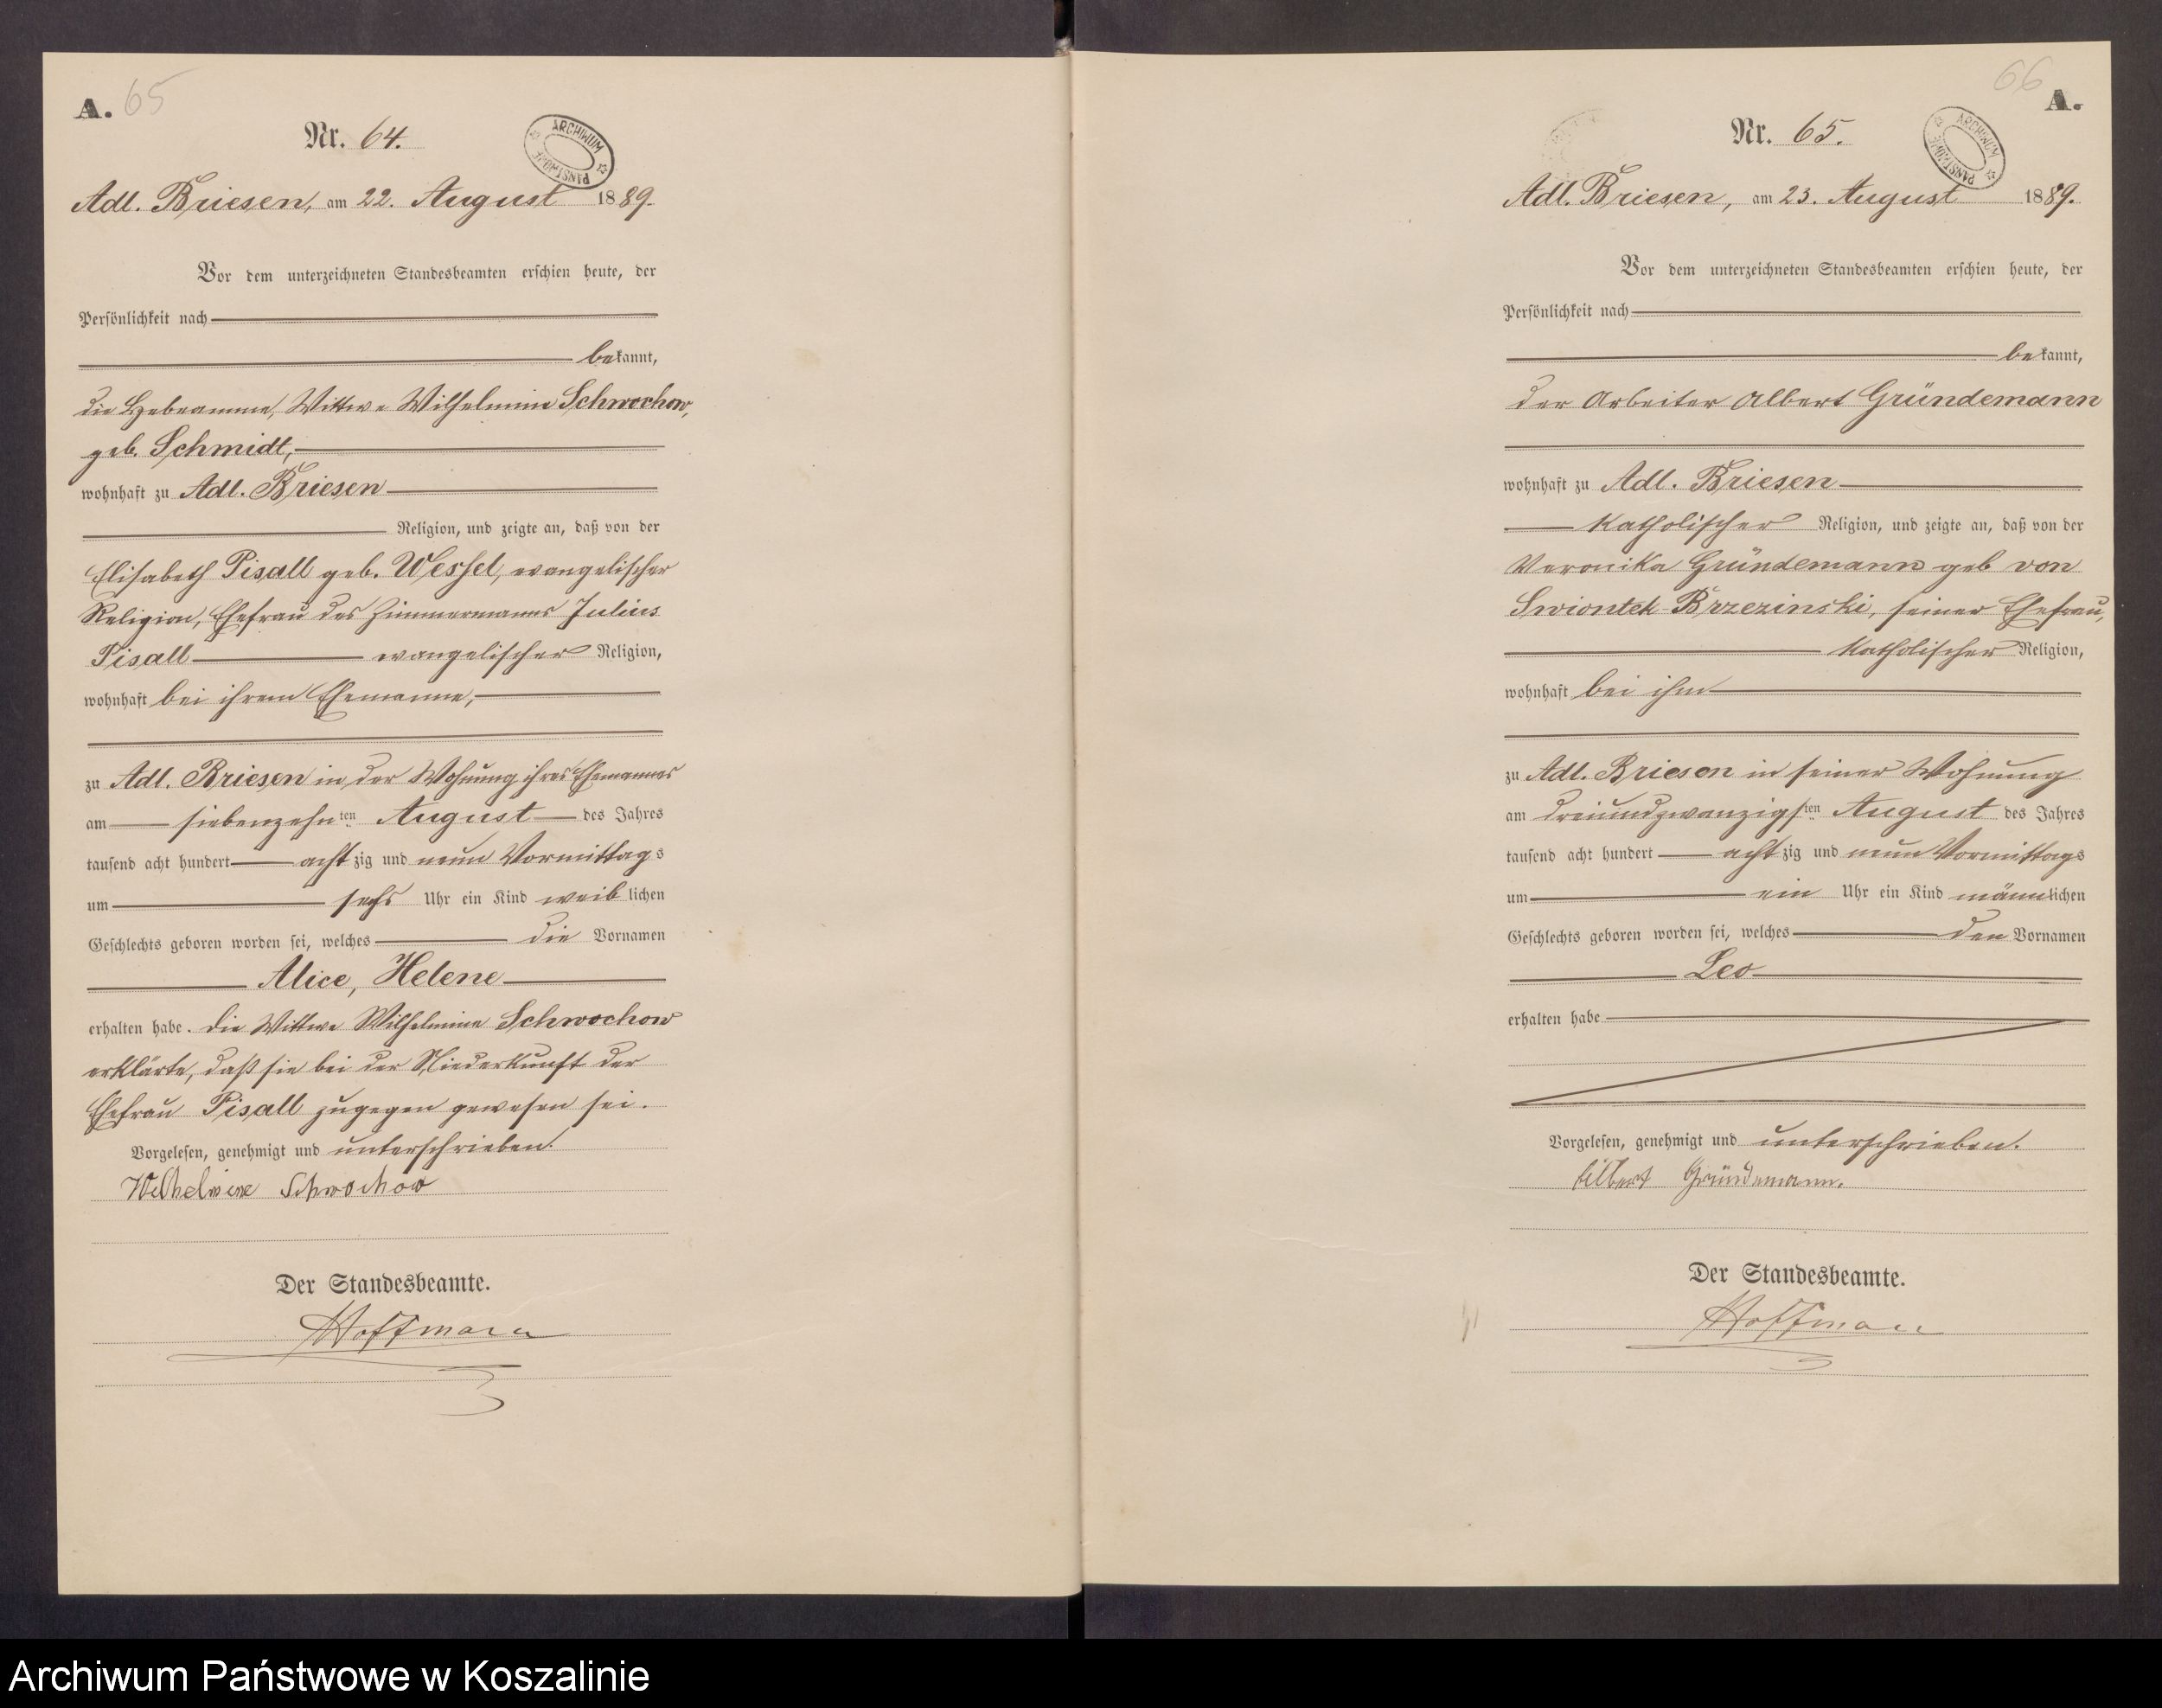 A. 65
Nr. 64.
ARCHIWUM PAŃSTWOWE
Adl. Briesen, am 22. August 1889.
Vor dem unterzeichneten Standesbeamten erschien heute, der
Persönlichkeit nach
bekannt,
die Hebeamme, Wittwe Wilhelmine Schwochow,
geb. Schmidt,
wohnhaft zu Adl. Briesen
Religion, und zeigte an, daß von der
Elisabeth Pisall geb. Wessel, evangelischer
Religion, Ehefrau des Zimmermanns Julius
Pisall evangelischer Religion,
wohnhaft bei ihrem Ehemanne,
zu Adl. Briesen in der Wohnung ihres Ehemannes
am siebenzehnten August des Jahres
tausend acht hundert achtzig und neun Vormittags
um sechs Uhr ein Kind weiblichen
Geschlechts geboren worden sei, welches die Vornamen
Alice, Helene
erhalten habe. Die Wittwe Wilhelmine Schwochow
erklärte, daß sie bei der Niederkunft der
Ehefrau Pisall zugegen gewesen sei.
Vorgelesen, genehmigt und unterschrieben.
Wilhelmine Schwochow
Der Standesbeamte.
Hoffmann
66 A.
Nr. 65.
ARCHIWUM PAŃSTWOWE
Adl. Briesen, am 23. August 1889.
Vor dem unterzeichneten Standesbeamten erschien heute, der
Persönlichkeit nach
bekannt,
der Arbeiter Albert Gründemann
wohnhaft zu Adl. Briesen
katholischer Religion, und zeigte an, daß von der
Veronika Gründemann geb von
Swiontek-Brzezinski, seiner Ehefrau,
katholischer Religion,
wohnhaft bei ihm
zu Adl. Briesen in seiner Wohnung
am dreiundzwanzigsten August des Jahres
tausend acht hundert achtzig und neun Vormittags
um ein Uhr ein Kind männlichen
Geschlechts geboren worden sei, welches den Vornamen
Leo
erhalten habe
Vorgelesen, genehmigt und unterschrieben.
Albert Gründemann.
Der Standesbeamte.
Hoffmann
Archiwum Państwowe w Koszalinie